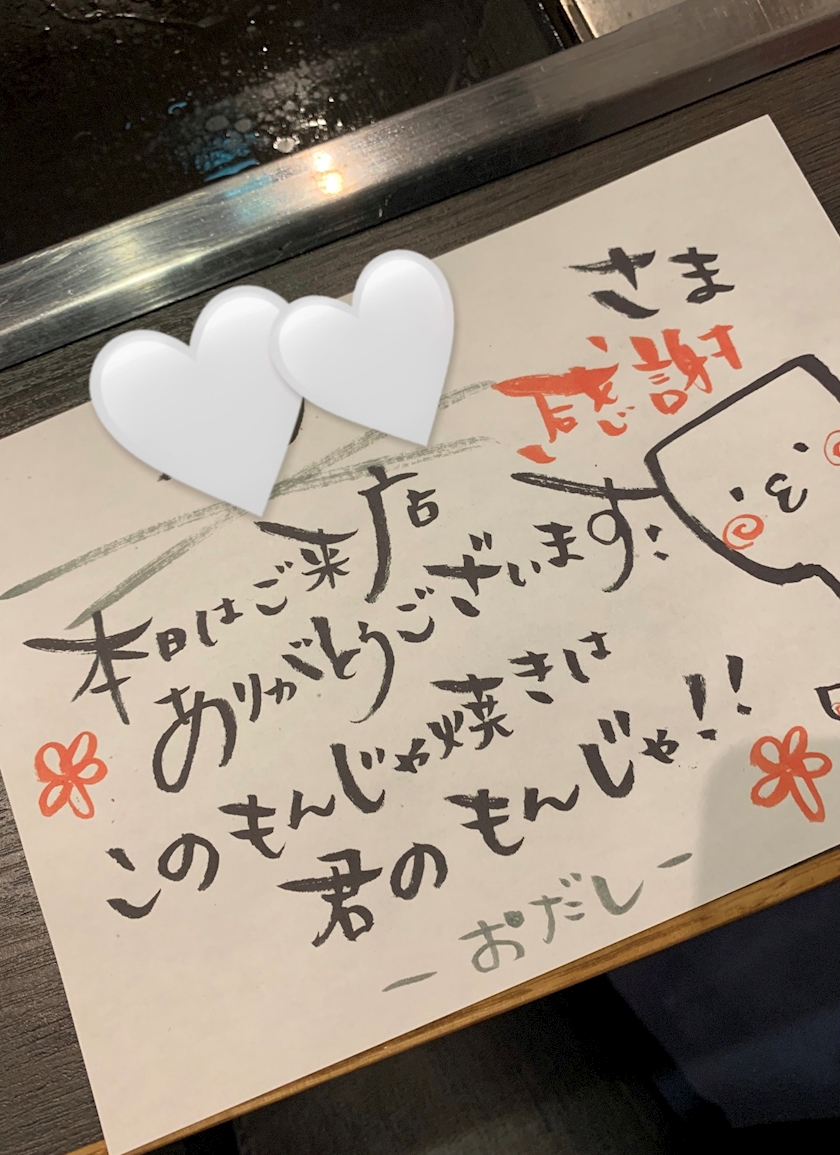 さま
感謝
本日はご来店
ありがとうございます:
このもんじゃ焼きは
君のもんじゃ!!
-おだし-